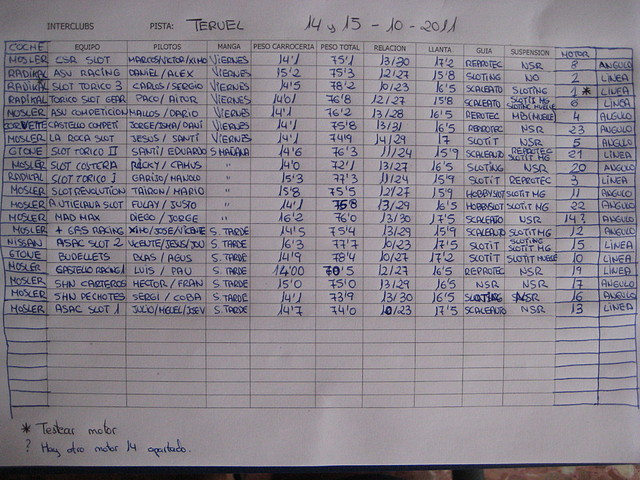 INTERCLUBS PISTA: TERUEL 14 y 15 - 10 - 2011
COCHE EQUIPO PILOTOS MANGA PESO CARROCERIA PESO TOTAL RELACION LLANTA GUIA SUSPENSION MOTOR
MOSLER CSR SLOT MARCOS/VICTOR/XIMO VIERNES 14'1 75'1 13/30 17'2 REPROTEC NSR 8 ANGULO
RADIKAL ASN RACING DANIEL/ALEX VIERNES 15'2 75'3 12/27 15'8 SLOTING NO 2 LINEA
RADIKAL SLOT TORICO 3 CARLOS/SERGIO VIERNES 14'5 78'2 10/23 16'5 SCALEATO SLOTING 1 * LINEA
RADIKAL TORICO SLOT GEAR PACO/AITOR VIERNES 14'01 76'8 12/27 15'8 SCALEATO SLOTIT MG 6 LINEA
MOSLER ASN COMPETICION MALLOS/DARIO VIERNES 14'1 76'2 13/28 16'5 REROTEC 4 ALGULO
CORVETTE CASTELLO COMPETI JORGE/ISMA/DANI VIERNES 14'1 75'8 13/31 16'5 REPROTEC NSR 23 ANGULO
MOSLER LA ROCA SLOT JESUS/SANTI VIERNES 14'1 74'9 14/29 17 SLOTIT NSR 5 ANGULO
GTOUE SLOT TORICO II SANTI/EDUARDO S. MAÑANA 14'6 76'3 11/24 15'9 SCALEAUTO REPROTEC SLOTIT MG 21 LINEA
MOSLER SLOT COSTERA RICKY/CAMUS " 14'0 72'1 13/27 16'5 SLOTING NSR 20 ANGULO
RADIKAL SLOT TORICO I GARIJO/MANOLO " 15'3 77'3 11/24 15'9 SLOTIT REPROTEC 3 LINEA
MOSLER SLOTREVOLUTION TAIRON/MARIO " 15'8 75'5 12/27 15'9 HOBBYSLOT SLOTIT MG 11 ANGULO
MOSLER FULAY/JUSTO " 15'4 75'8 13/29 16'5 HOBBISLOT SLOTIT MG 22 ANGULO
MOSLER MAD MAX DIEGO/JORGE " 16'2 76'0 13/30 17'5 SCALEATO NSR 14? ANGULO
MOSLER + GAS RACING XIMO/JOSE/VICENTE S. TARDE 14'5 75'4 13/29 15'9 SCALEAUTO SLOTIT MG 12 ANGULO
NISSAN ASAC SLOT 2 VICENTE/JESUS/JOU S. TARDE 16'3 77'7 10/23 17'5 SLOTIT SLOTING SLOTIT MG 15 LINEA
GTOUE BUDELLETS BLAS/AGUS S. TARDE 14'9 78'4 10/27 17'2 SLOTIT SLOTIT MUELLE 10 LINEA
MOSLER GASTELLO RACING 1 LUIS / PAU S. TARDE 14'00 70'5 12/27 16'5 REPROTEC NSR 19 LINEA
MOSLER SHN CARTEROS HECTOR/FRAN S. TARDE 15'0 75'0 13/29 16'5 NSR NSR 17 ANGULO
MOSLER SHN PECHOTES SERGI/COBA S. TARDE 14'1 73'9 13/30 16'5 SLOTING NSR 16 ANGULO
MOSLER ASAC SLOT 1 JULIO/MIGUEL/JOSEV S. TARDE 14'7 74'0 10/23 17'5 SCALEATO NSR 13 LINEA
* Testear motor
? Hay otro motor 14 apartado.